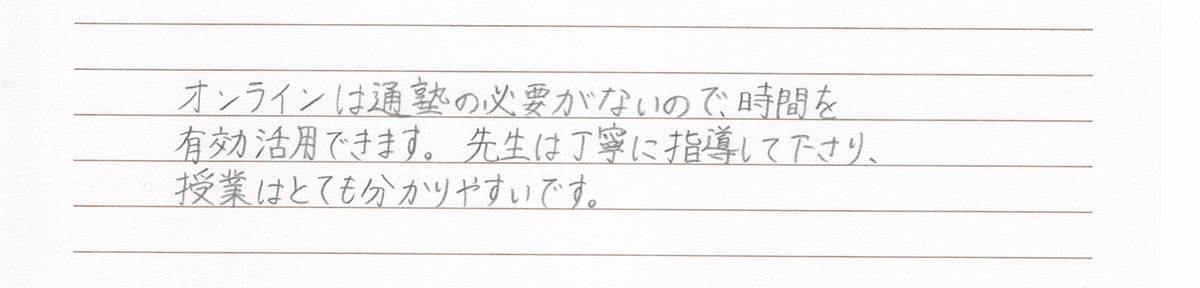 オンラインは通塾の必要がないので、時間を
有効活用できます。先生は丁寧に指導して下さり、
授業はとても分かりやすいです。